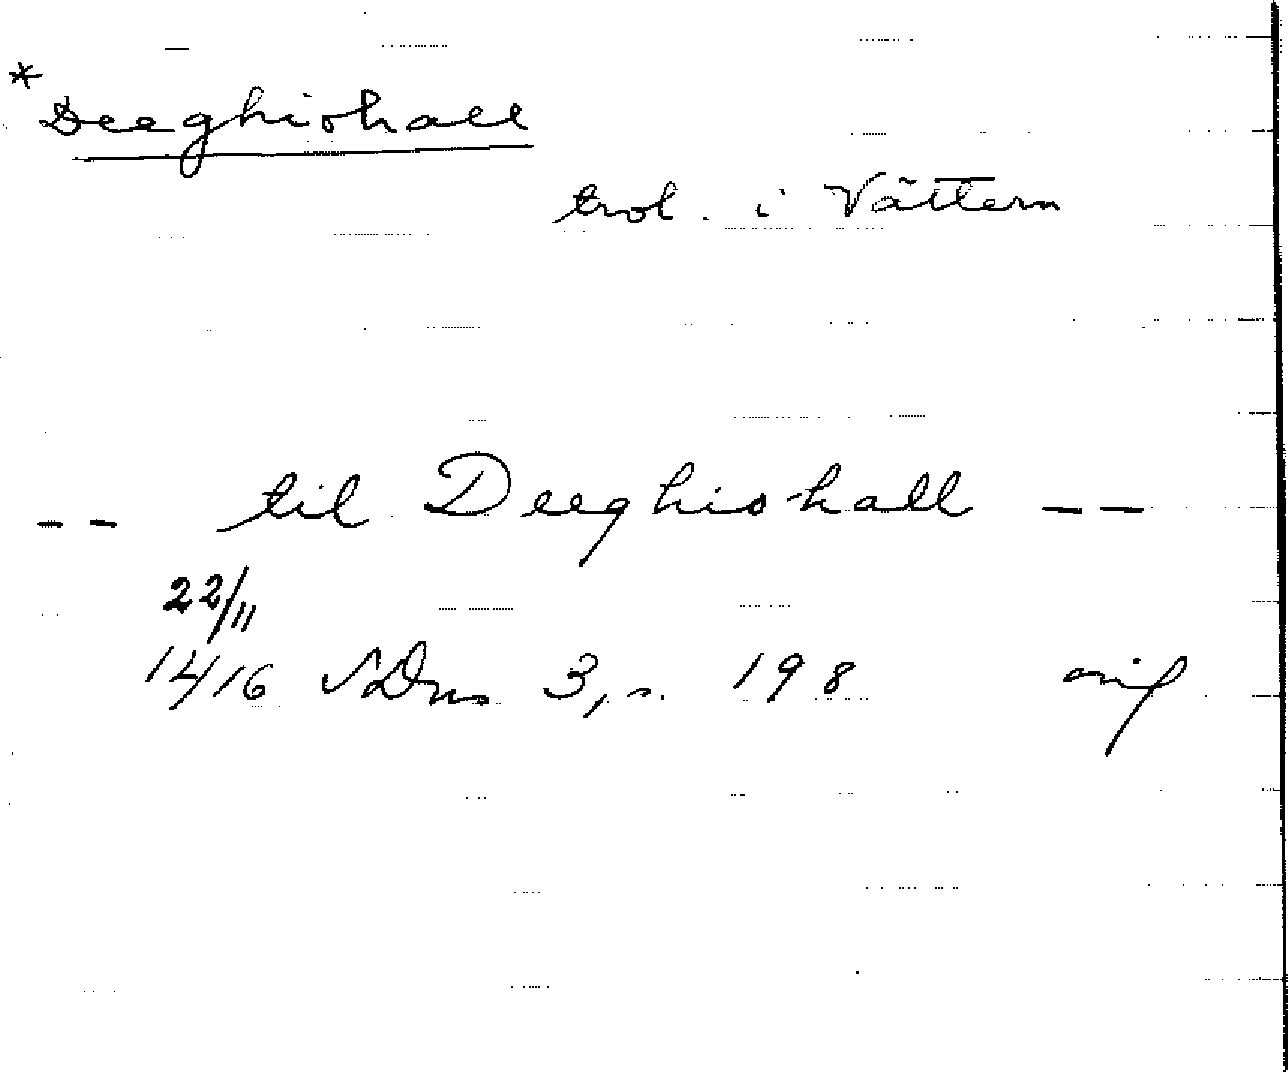 *Deeghishall
trol. i Vättern
-- til Deeghishall --
22/11
1416 SDns 3, s. 198 orig